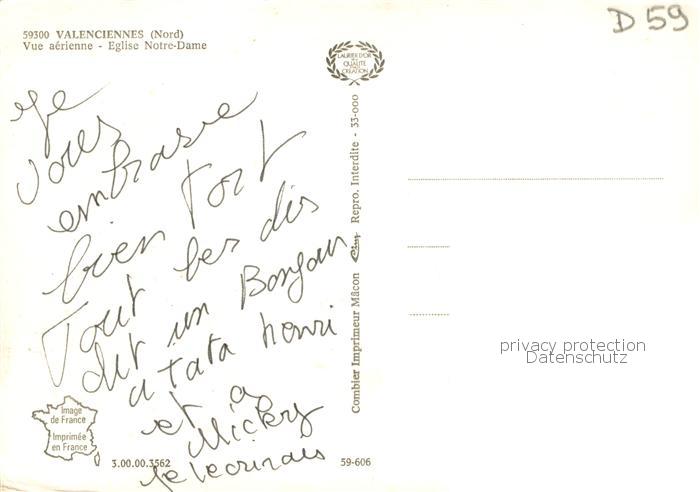 59300 VALENCIENNES (Nord)
Vue aérienne - Eglise Notre-Dame
D 59
LAURIER D'OR
DE
QUALITÉ
CRÉATION
Je
vous
embrasse
bien Fort
Tout les dis
dit un Bonjour
a tata henri
et a
Mickey
je lecrirais
Image
de France
Imprimée
en France
3.00.00.3562
59-606
Combier Imprimeur Mâcon Cim Repro. Interdite - 33-000
privacy protection
Datenschutz